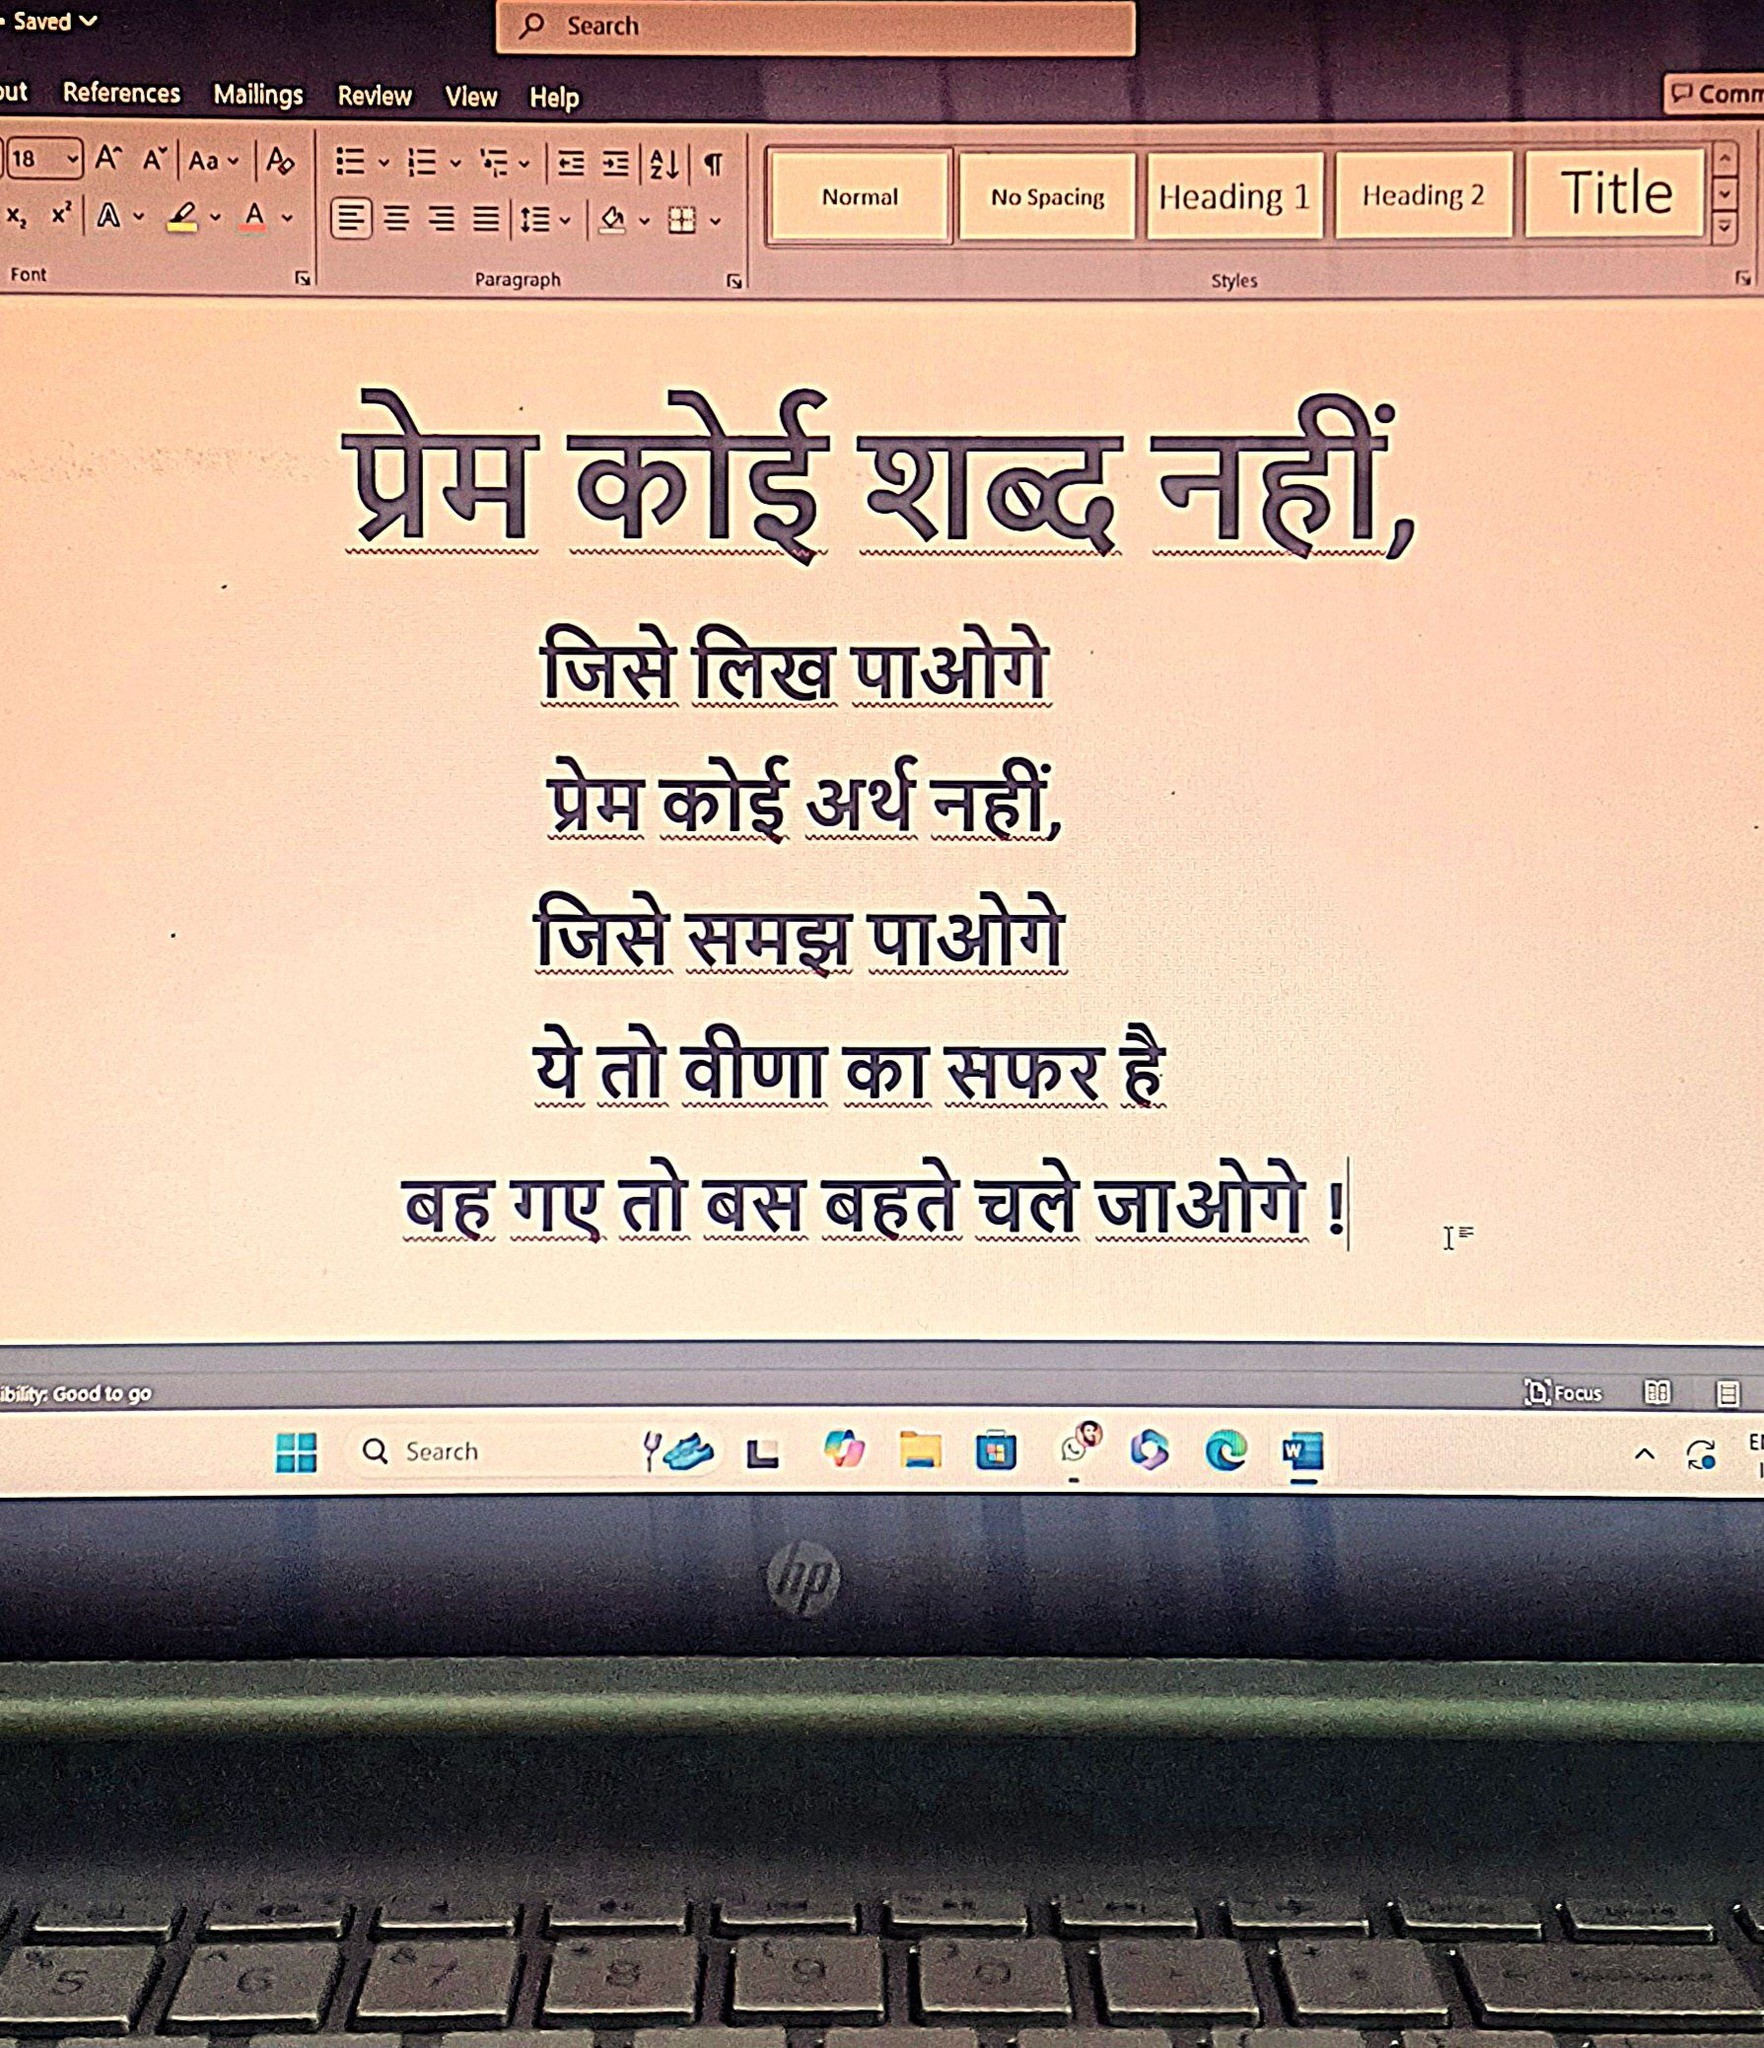 Saved
Search
References Mailings Review View Help
Comm
18 Aa
Font Paragraph Styles
Normal No Spacing Heading 1 Heading 2 Title
प्रेम कोई शब्द नहीं,
जिसे लिख पाओगे
प्रेम कोई अर्थ नहीं,
जिसे समझ पाओगे
ये तो वीणा का सफर है
बह गए तो बस बहते चले जाओगे !
ibility: Good to go
Focus
Search
hp
5 6 7 8 9 0